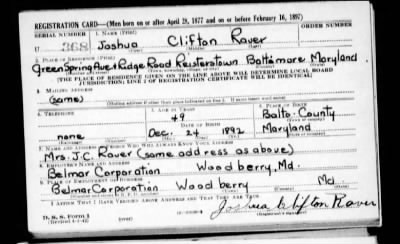 REGISTRATION CARD—(Men born on or after April 28, 1877 and on or before February 16, 1897)
SERIAL NUMBER 1. NAME (Print) ORDER NUMBER
U 368 Joshua Clifton Raver
(First) (Middle) (Last)
2. PLACE OF RESIDENCE (Print)
Green Spring Ave & Ridge Road Reisterstown Baltimore Maryland
[THE PLACE OF RESIDENCE GIVEN ON THE LINE ABOVE WILL DETERMINE LOCAL BOARD
JURISDICTION; LINE 2 OF REGISTRATION CERTIFICATE WILL BE IDENTICAL]
3. MAILING ADDRESS
(same)
[Mailing address if other than place indicated on line 2. If same insert word same]
4. TELEPHONE 5. AGE IN YEARS 6. PLACE OF BIRTH
49 Balto. County
DATE OF BIRTH
none Dec. 24 1892 Maryland
7. NAME AND ADDRESS OF PERSON WHO WILL ALWAYS KNOW YOUR ADDRESS
Mrs. J.C. Raver (same address as above)
8. EMPLOYER'S NAME AND ADDRESS
Belmar Corporation Woodberry, Md.
9. PLACE OF EMPLOYMENT OR BUSINESS
Belmar Corporation Woodberry Md.
I AFFIRM THAT I HAVE VERIFIED ABOVE ANSWERS AND THAT THEY ARE TRUE.
D. S. S. Form 1
(Revised 4-1-42) Joshua Clifton Raver
(Registrant's signature)